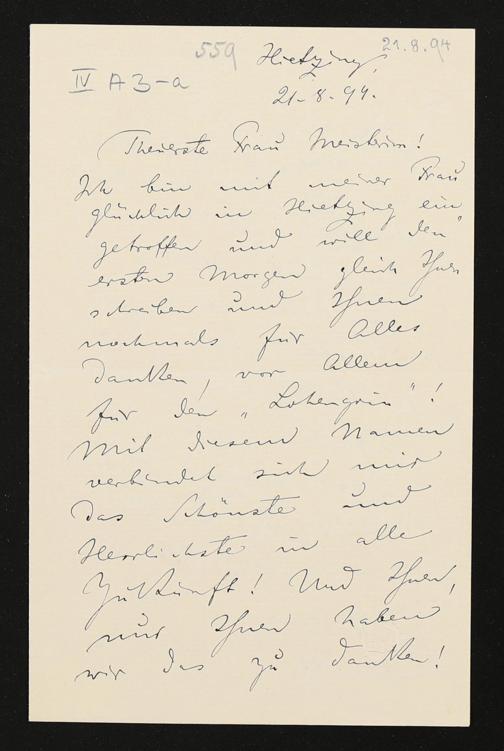 559
21.8.94
Hietzing,
IV A 3-a
21-8-94.
Theuerste Frau Meisterin!
Ich bin mit meiner Frau
glücklich in Hietzing ein
getroffen und will den
ersten Morgen gleich Ihnen
schreiben und Ihnen
nochmals für Alles
danken, vor Allem
für den „Lohengrin"!
Mit diesem Namen
verbindet sich mir
das Schönste und
Herrlichste in alle
Zukunft! Und Ihnen,
nur Ihnen haben
wir das zu danken!